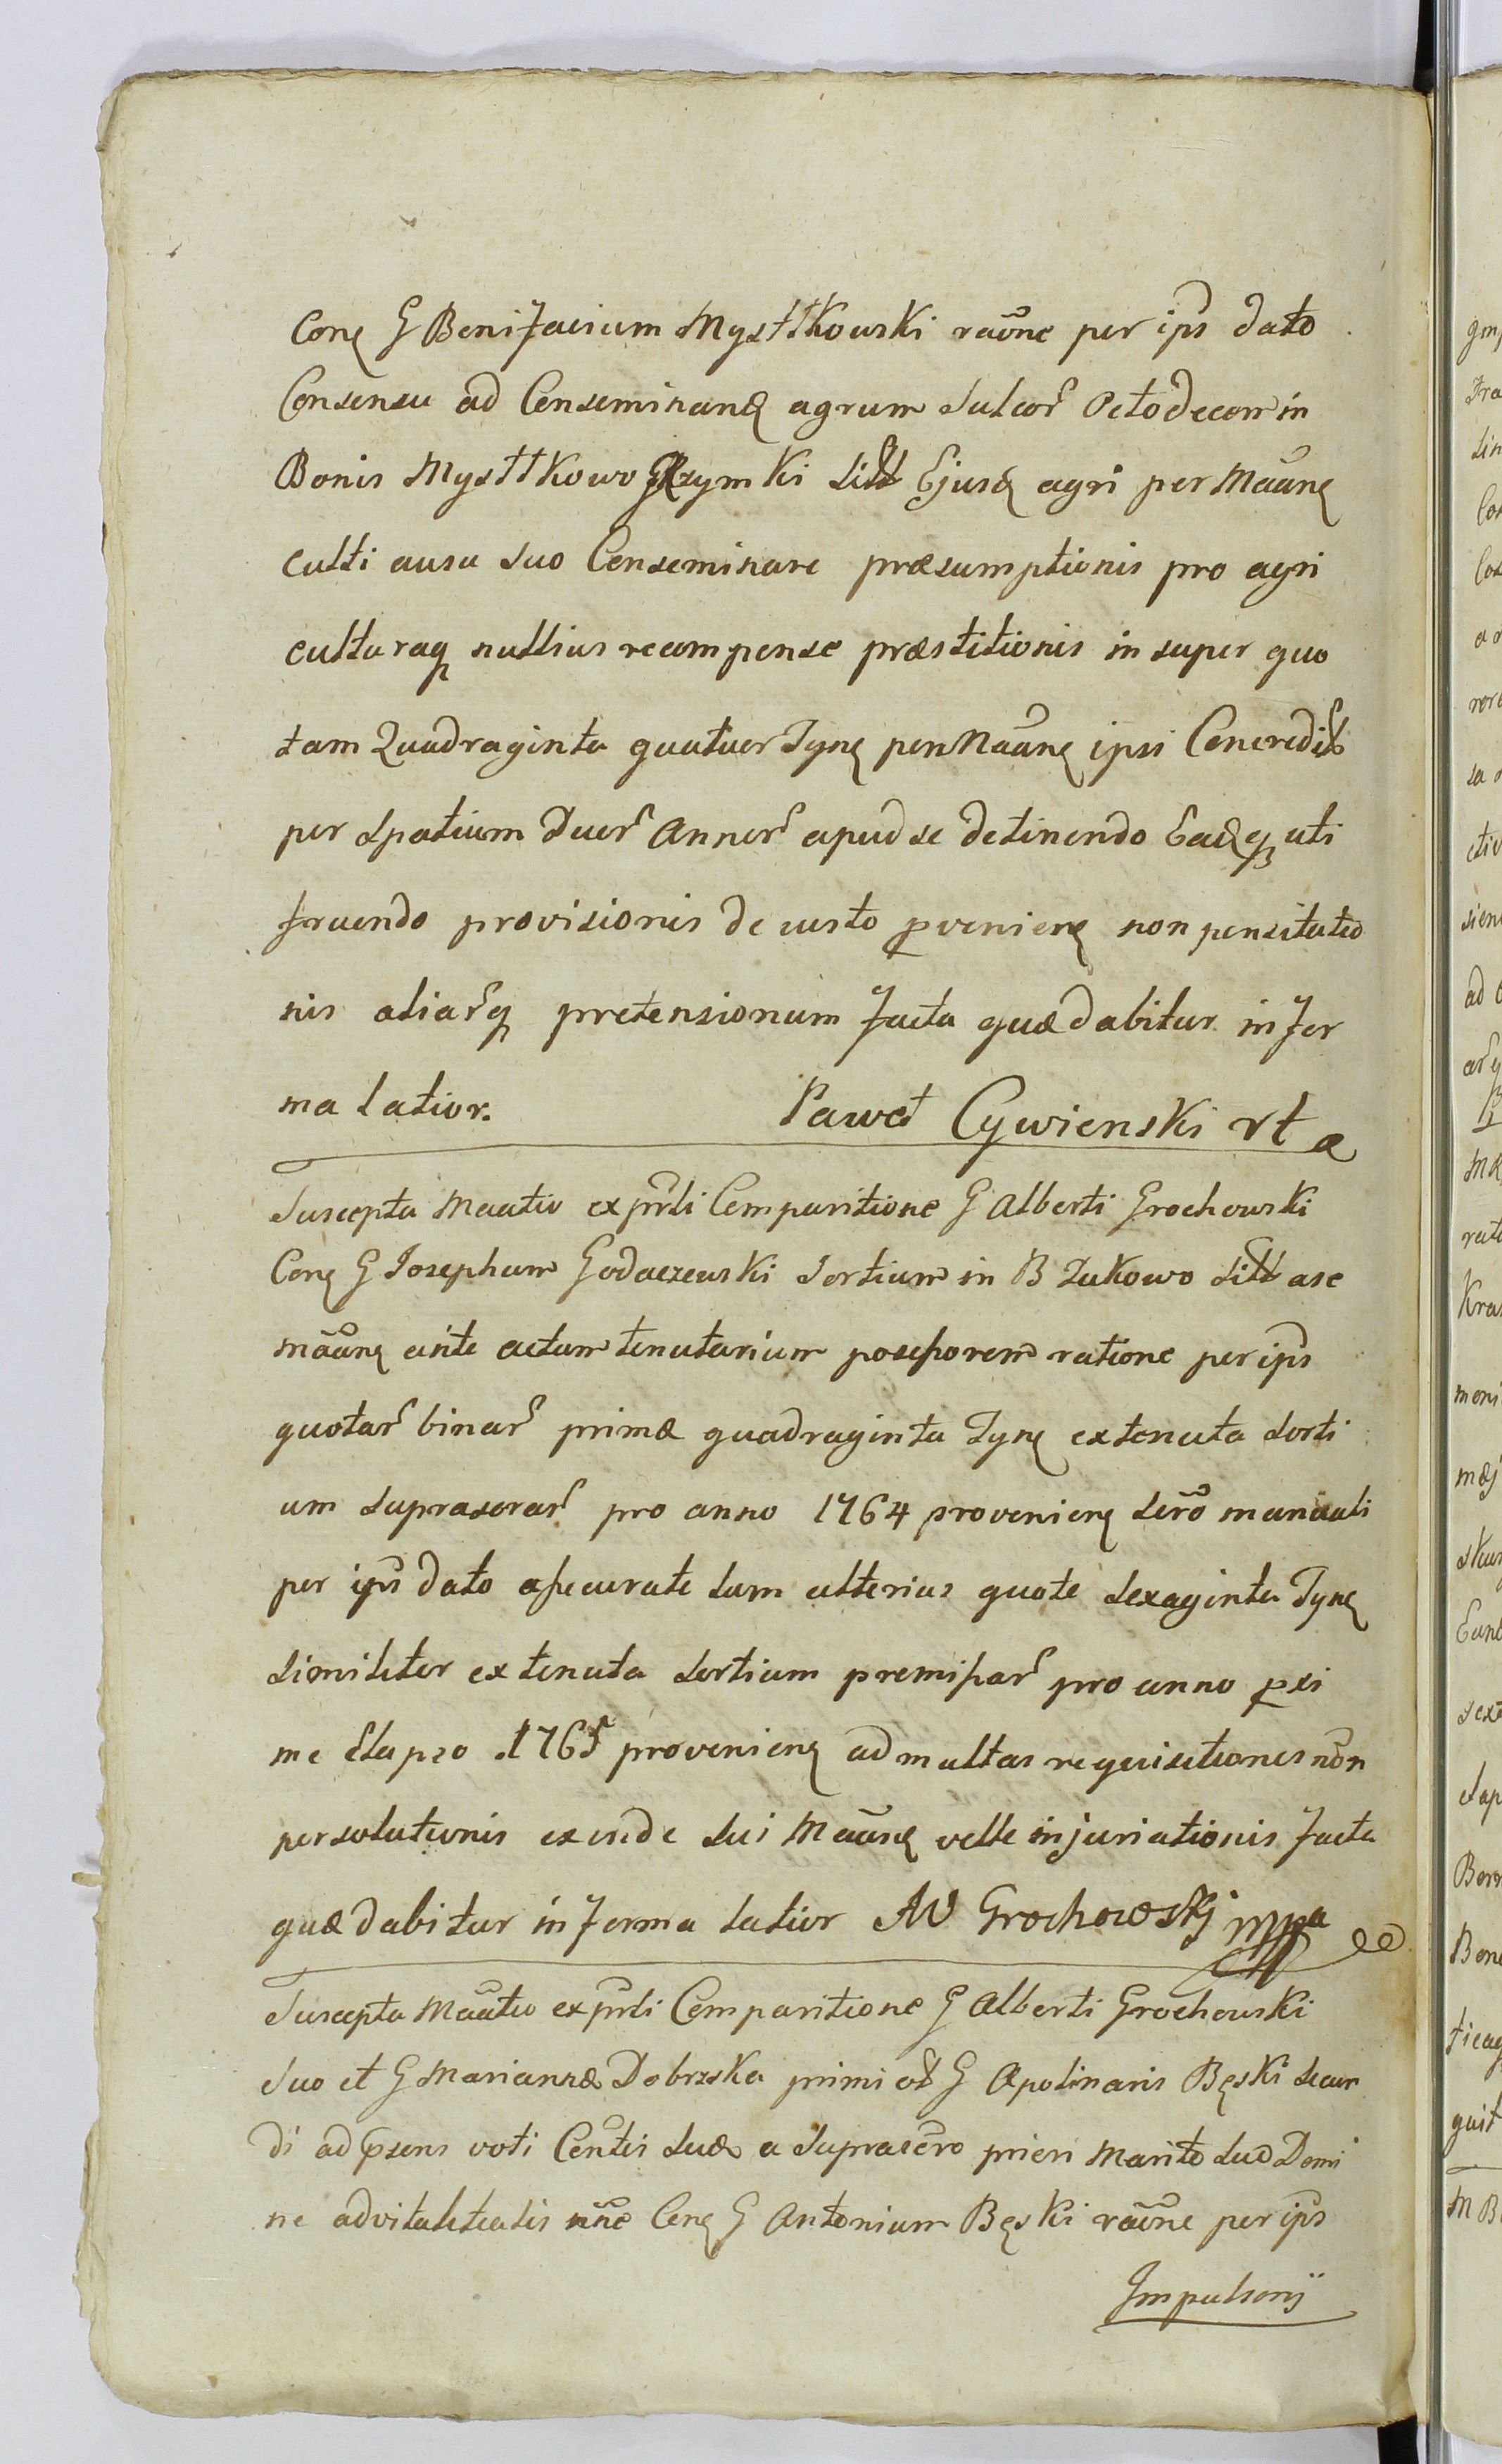 Conȩ G Bonifacium MysttKowski raõne per ip̃s dato
Consensu ad Conseminanḑ agrum Sulcor̃ Octodecem in
Bonis MysttKowo Grzymki sitt Ejusḑ agri per Maãnȩ
culti ausu suo Conseminare præsumptionis pro agri
culturaq nullius recompense præstitionis in super quo
tam Quadraginta quatuor Tynȩ per Maãnȩ ipsi Concredit
per Spatium Duor̃ Annor̃ apud se detinendo Eaḑq uti
fruendo provisionis de iusto pvenienȩ non pensitatio
nis aliar̃q pretensionum facta quæ dabitur in for
ma latior.
Paweł Cywienski rt
Suscepta Maatio ex pñli Comparitione G Alberti Grochowski
Conȩ G Josephum Godaczewski Sortium in B ŻuKowo sitt ase
mãanȩ ante actum tenutarium possessorem ratione per ip̃s
quotar̃ binar̃ primæ quadraginta Tynȩ ex tenuta sorti
um suprascrar̃ pro anno 1764 provenienȩ scrõ manuali
per ip̃s dato assecurate tum alterius quote sexaginta Tynȩ
similiter ex tenuta sortium premissar̃ pro anno pxi
me Elapso 1765 provenienȩ ad multas requisitiones non
persolutionis exinde sui Maãnȩ velle injuriationis facta
quæ dabitur in forma latior AW Grochowskj mpa
Suscepta Maãtio ex pñli Comparitione G Alberti Grochowski
suo et G Mariannæ Dobrzska primi et G Apolinaris BęsKi secun
di ad p̃sens voti Conȶis suæ a suprascr̃o priori Marito suo Domi
ne advitalitialis nñe Conȩ G Antonium BęsKi raõne per ip̃s
Impulsorij